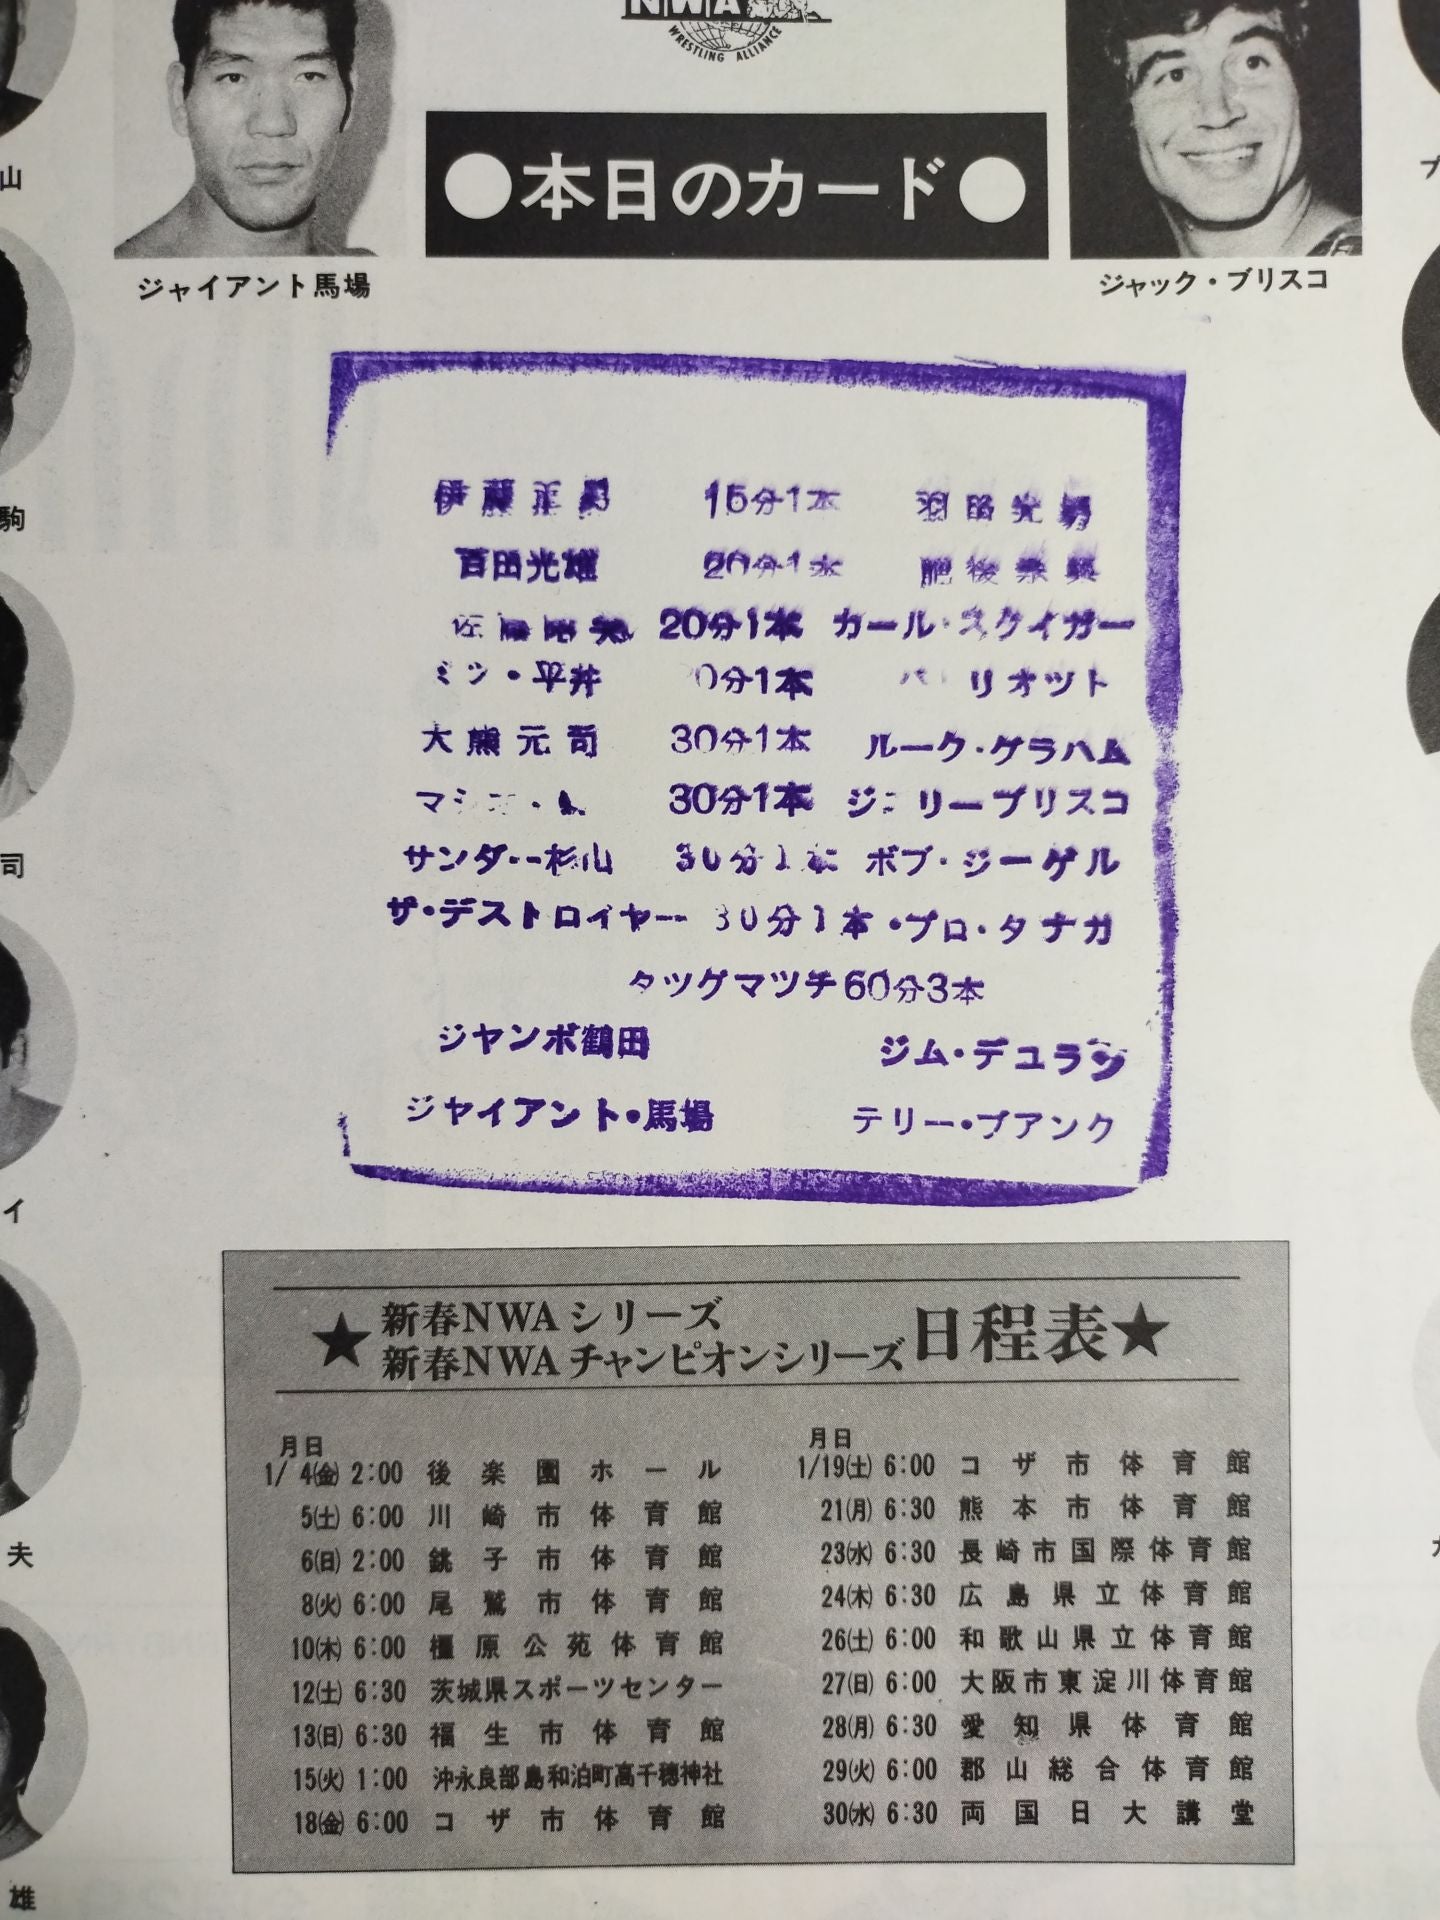 NWA
WRESTLING ALLIANCE
●本日のカード●
ジャイアント馬場
ジャック・ブリスコ
山
駒
司
イ
夫
雄
伊藤正男 15分1本 羽田光男
百田光雄 20分1本 肥後宗典
佐 20分1本 カール・スタイガー
ミツ・平井 0分1本 リオツト
大熊元司 30分1本 ルーク・グラハム
マシオ・ 30分1本 ジェリーブリスコ
サンダー杉山 30分1本 ボブ・ジーゲル
ザ・デストロイヤー 30分1本 ・プロ・タナカ
タツグマツチ60分3本
ジヤンボ鶴田 ジム・デユラン
ジヤイアント・馬場 テリー・フアンク
★新春NWAシリーズ
新春NWAチャンピオンシリーズ日程表★
月日
1/4㈮ 2:00 後楽園ホール
5㈯ 6:00 川崎市体育館
6㈰ 2:00 銚子市体育館
8㈫ 6:00 尾鷲市体育館
10㈭ 6:00 橿原公苑体育館
12㈯ 6:30 茨城県スポーツセンター
13㈰ 6:30 福生市体育館
15㈫ 1:00 沖永良部島和泊町高千穂神社
18㈮ 6:00 コザ市体育館
月日
1/19㈯ 6:00 コザ市体育館
21㈪ 6:30 熊本市体育館
23㈬ 6:30 長崎市国際体育館
24㈭ 6:30 広島県立体育館
26㈯ 6:00 和歌山県立体育館
27㈰ 6:00 大阪市東淀川体育館
28㈪ 6:30 愛知県体育館
29㈫ 6:00 郡山総合体育館
30㈬ 6:30 両国日大講堂